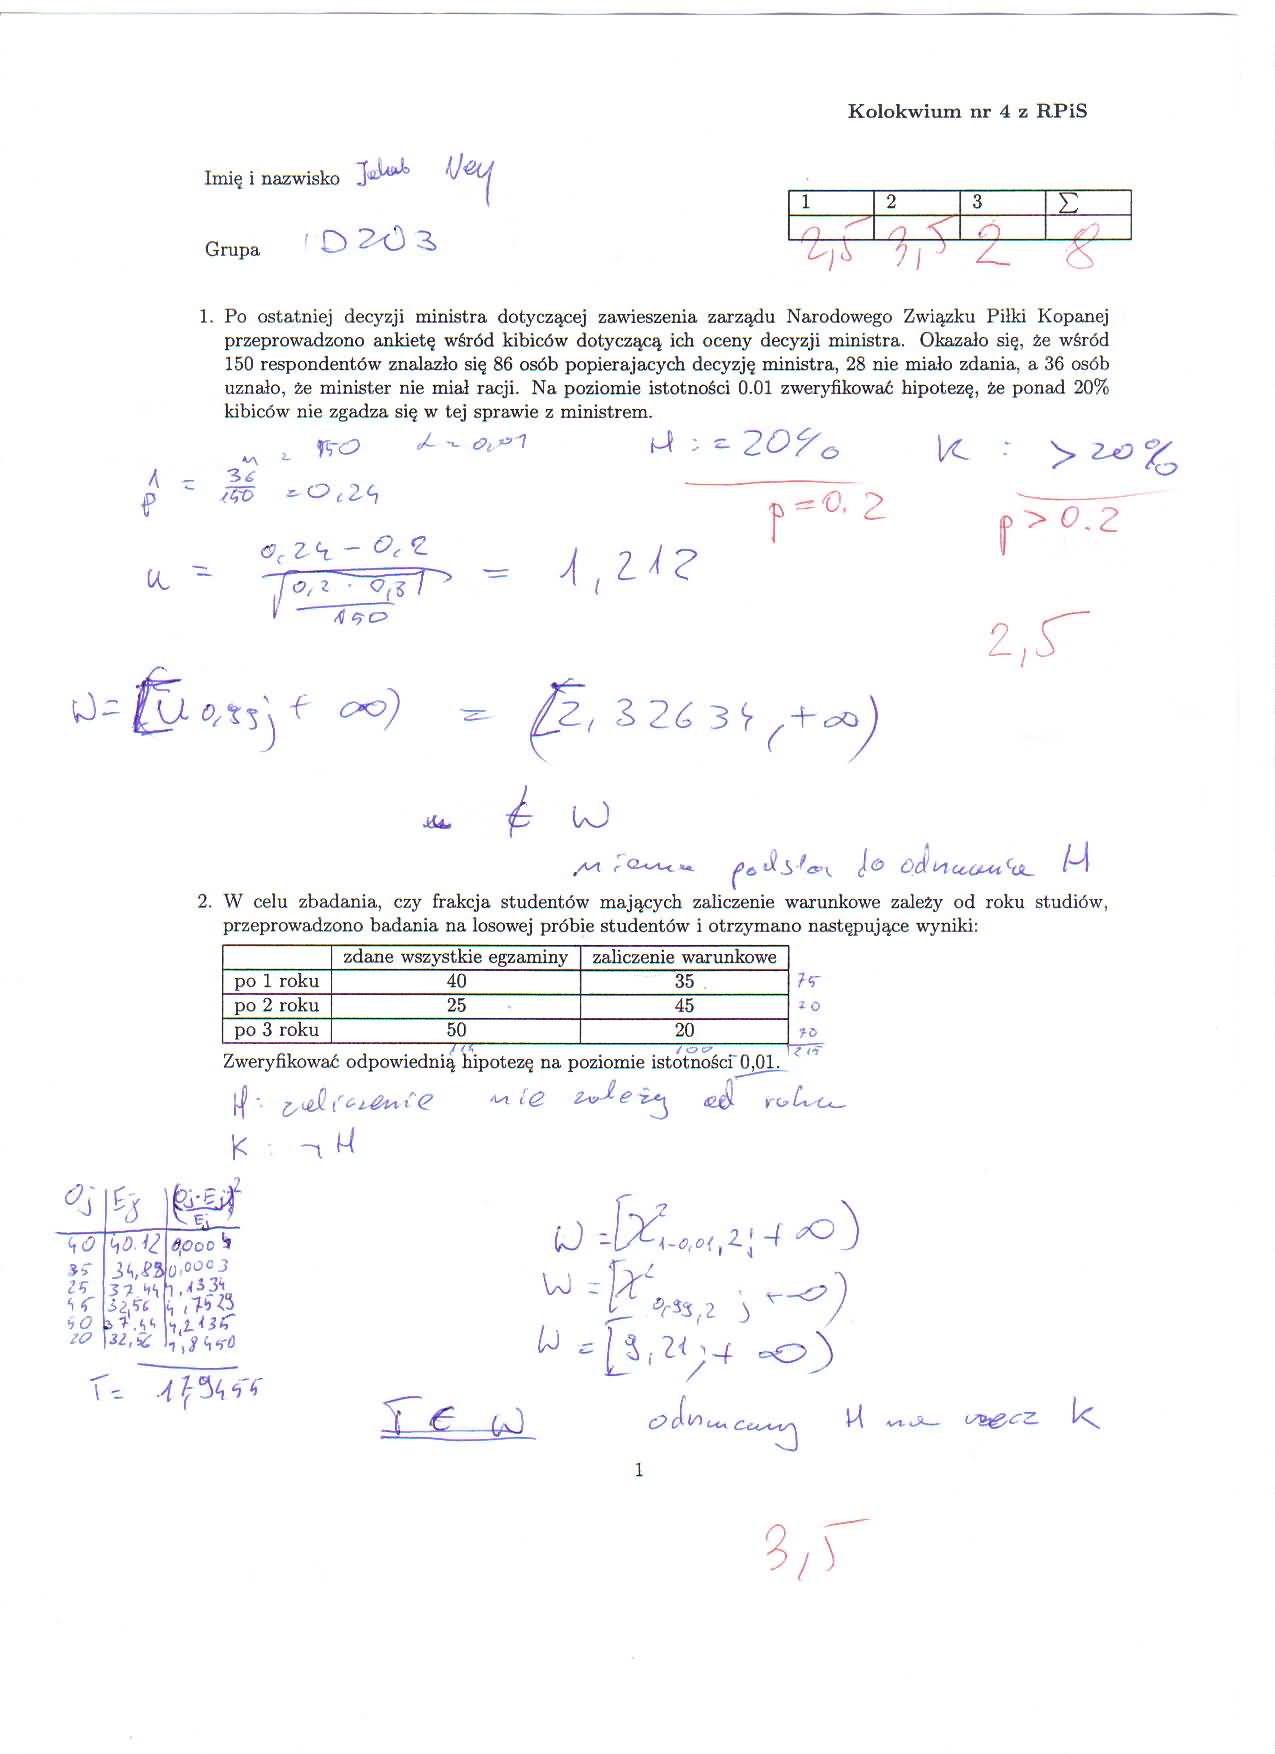 Kolokwium nr 4 z RPiS
Imię i nazwisko Jakub Ney
Grupa ID203
1 2 3 Σ
2,5 3,5 2 8
1. Po ostatniej decyzji ministra dotyczącej zawieszenia zarządu Narodowego Związku Piłki Kopanej
przeprowadzono ankietę wśród kibiców dotyczącą ich oceny decyzji ministra. Okazało się, że wśród
150 respondentów znalazło się 86 osób popierajacych decyzję ministra, 28 nie miało zdania, a 36 osób
uznało, że minister nie miał racji. Na poziomie istotności 0.01 zweryfikować hipotezę, że ponad 20%
kibiców nie zgadza się w tej sprawie z ministrem.
n = 150 α = 0,01 H : = 20% K : > 20%
p̂ = 36/150 = 0,24 p = 0.2 p > 0.2
u = (0,24 - 0,2)/√(0,2 · 0,8/150) = 1,212
2,5
W = [u 0,99; + ∞) = [2,32634, +∞)
u ∉ W
nie ma podstaw do odrzucenia H
2. W celu zbadania, czy frakcja studentów mających zaliczenie warunkowe zależy od roku studiów,
przeprowadzono badania na losowej próbie studentów i otrzymano następujące wyniki:
zdane wszystkie egzaminy zaliczenie warunkowe
po 1 roku 40 35 75
po 2 roku 25 45 70
po 3 roku 50 20 70
115 100 215
Zweryfikować odpowiednią hipotezę na poziomie istotności 0,01.
H: zaliczenie nie zależy od roku
K : ¬ H
Oj Ej (Oj-Ej)²/Ej
40 40.12 0,0004
35 34,88 0,0003
25 37.44 4,1334
45 32,56 4,7529
50 37.44 4,2135
20 32,56 4,8450
T = 17,9455
W = [χ²1-0,01,2; + ∞)
W = [χ²0,99,2; +∞)
W = [9,21; + ∞)
T ∈ W odrzucamy H na rzecz K
1
3,5